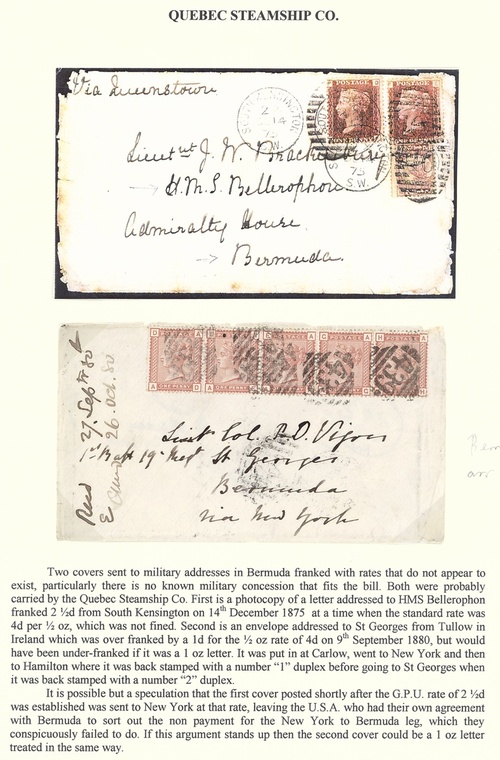 QUEBEC STEAMSHIP CO.
Via Queenstown
SOUTH KENSINGTON
14
75
S.W.
POSTAGE
POSTAGE
75
S.W.
Lieutnt J. W. Brackenbury
H.M.S. Bellerophon
Admiralty House
Bermuda.
Recd 27. Septr 80
26. Oct. 80
A D
ONE PENNY
Lieut Col. P.D. Vigors
1st Batt 19th Regt St Georges
Bermuda
via New York
Two covers sent to military addresses in Bermuda franked with rates that do not appear to
exist, particularly there is no known military concession that fits the bill. Both were probably
carried by the Quebec Steamship Co. First is a photocopy of a letter addressed to HMS Bellerophon
franked 2 ½d from South Kensington on 14th December 1875 at a time when the standard rate was
4d per ½ oz, which was not fined. Second is an envelope addressed to St Georges from Tullow in
Ireland which was over franked by a 1d for the ½ oz rate of 4d on 9th September 1880, but would
have been under-franked if it was a 1 oz letter. It was put in at Carlow, went to New York and then
to Hamilton where it was back stamped with a number “1” duplex before going to St Georges when
it was back stamped with a number “2” duplex.
It is possible but a speculation that the first cover posted shortly after the G.P.U. rate of 2 ½d
was established was sent to New York at that rate, leaving the U.S.A. who had their own agreement
with Bermuda to sort out the non payment for the New York to Bermuda leg, which they
conspicuously failed to do. If this argument stands up then the second cover could be a 1 oz letter
treated in the same way.